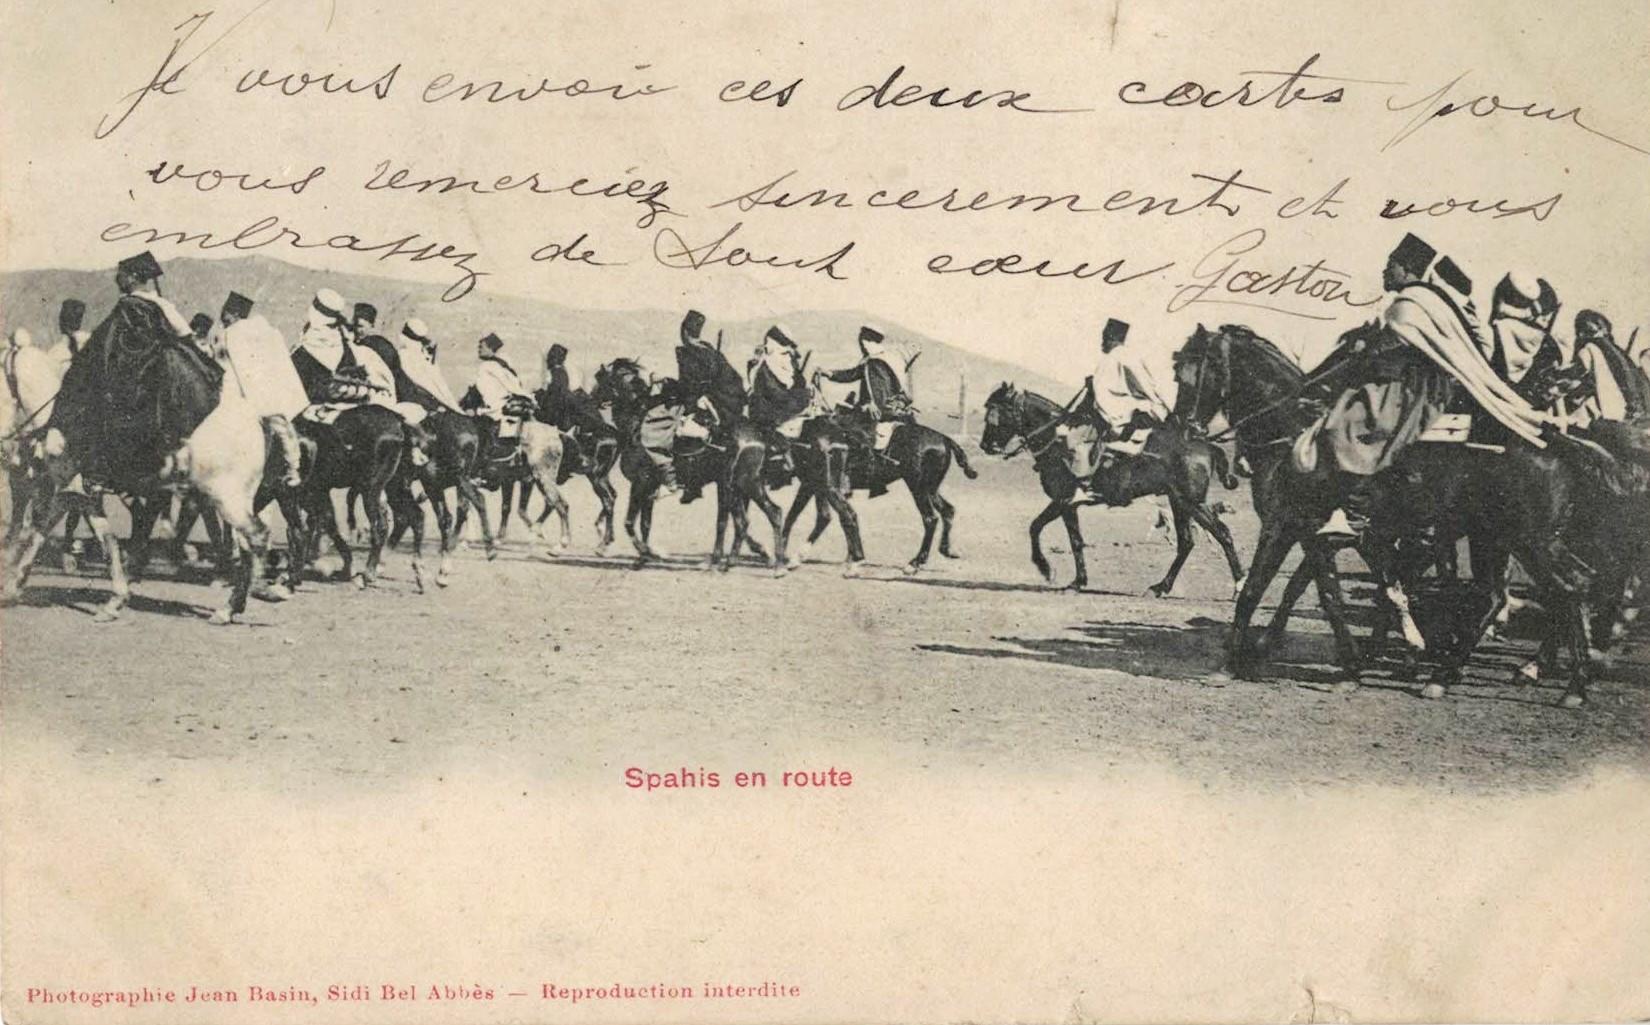 Je vous envoie ces deux cartes pour
vous remerciez sincerement et vous
embrassez de tout cœur. Gaston
Spahis en route
Photographie Jean Basin, Sidi Bel Abbès — Reproduction interdite